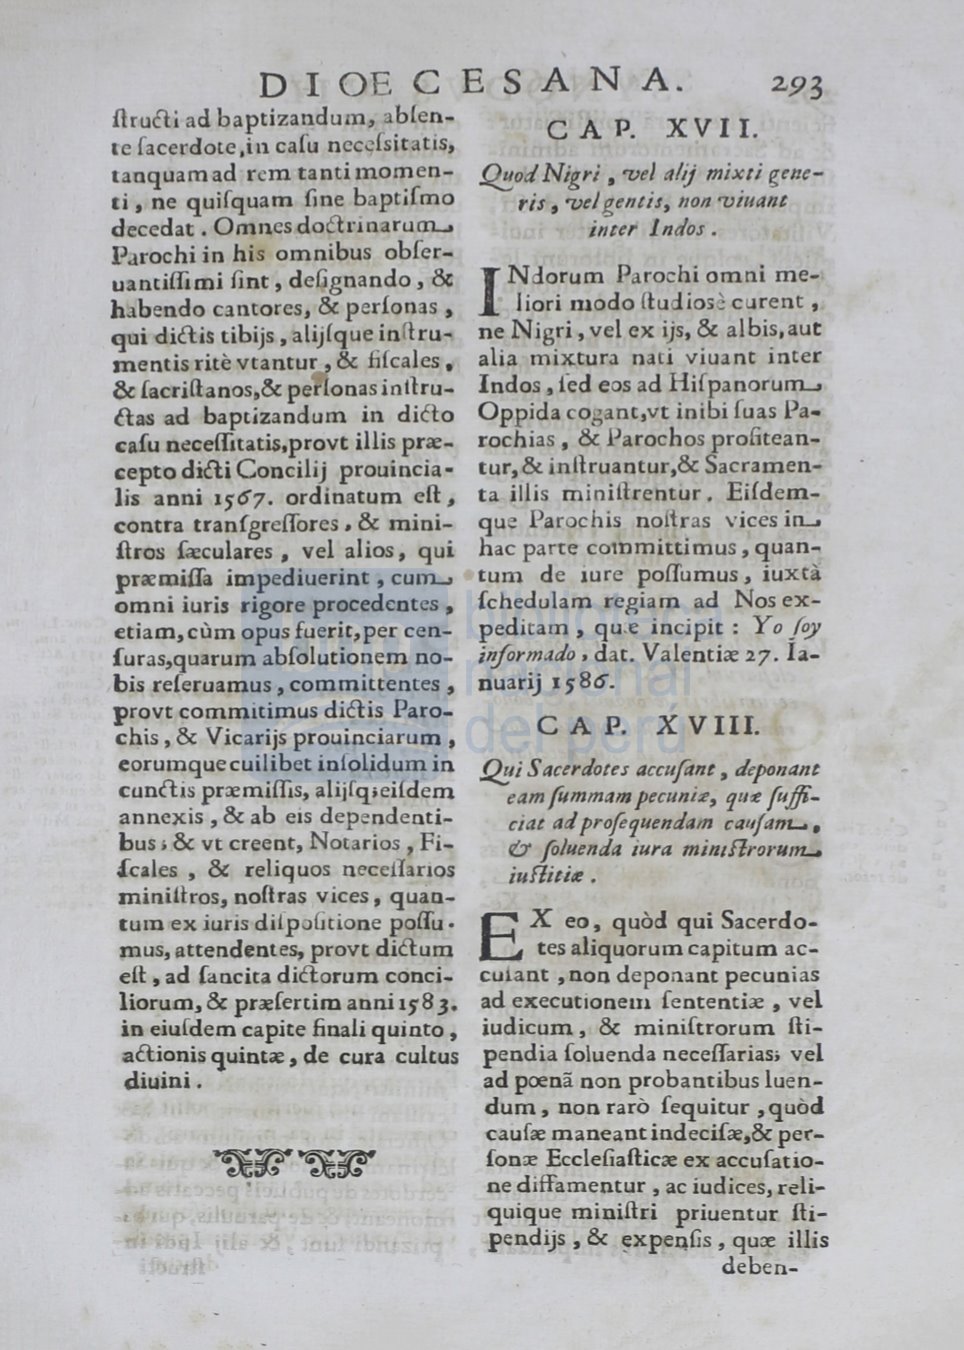 DIOECESANA. 293
ſtructi ad baptizandum, abſen-
te ſacerdote,in caſu neceſsitatis,
tanquam ad rem tanti momen-
ti, ne quiſquam ſine baptiſmo
decedat. Omnes doctrinarum
Parochi in his omnibus obſer-
uantiſſimi ſint, deſignando, &
habendo cantores, & perſonas,
qui dictis tibijs, alijſque inſtru-
mentis ritè vtantur, & fiſcales,
& ſacriſtanos,& perſonas inſtru-
ctas ad baptizandum in dicto
caſu neceſſitatis,provt illis præ-
cepto dicti Concilij prouincia-
lis anni 1567. ordinatum eſt,
contra tranſgreſſores, & mini-
ſtros ſæculares, vel alios, qui
præmiſſa impediuerint, cum
omni iuris rigore procedentes,
etiam, cùm opus fuerit,per cen-
ſuras,quarum abſolutionem no-
bis reſeruamus, committentes,
provt commitimus dictis Paro-
chis, & Vicarijs prouinciarum,
eorumque cuilibet inſolidum in
cunctis præmiſſis, alijſq;eiſdem
annexis, & ab eis dependenti-
bus; & vt creent, Notarios, Fi-
ſcales, & reliquos neceſſarios
miniſtros, noſtras vices, quan-
tum ex iuris diſpoſitione poſſu-
mus, attendentes, provt dictum
eſt, ad ſancita dictorum conci-
liorum, & præſertim anni 1583.
in eiuſdem capite finali quinto,
actionis quintæ, de cura cultus
diuini.
CAP. XVII.
Quod Nigri, vel alij mixti gene-
ris, vel gentis, non viuant
inter Indos.
INdorum Parochi omni me-
liori modo ſtudiosè curent,
ne Nigri, vel ex ijs, & albis, aut
alia mixtura nati viuant inter
Indos, ſed eos ad Hiſpanorum
Oppida cogant,vt inibi ſuas Pa-
rochias, & Parochos profitean-
tur, & inſtruantur,& Sacramen-
ta illis miniſtrentur. Eiſdem-
que Parochis noſtras vices in
hac parte committimus, quan-
tum de iure poſſumus, iuxtà
ſchedulam regiam ad Nos ex-
peditam, quæ incipit: Yo ſoy
informado, dat. Valentiæ 27. Ia-
nuarij 1586.
CAP. XVIII.
Qui Sacerdotes accuſant, deponant
eam ſummam pecuniæ, quæ ſuffi-
ciat ad proſequendam cauſam,
& ſoluenda iura miniſtrorum
iuſtitiæ.
EX eo, quòd qui Sacerdo-
tes aliquorum capitum ac-
cuſant, non deponant pecunias
ad executionem ſententiæ, vel
iudicum, & miniſtrorum ſti-
pendia ſoluenda neceſſarias; vel
ad poenã non probantibus luen-
dum, non rarò ſequitur, quòd
cauſæ maneant indeciſæ,& per-
ſonæ Eccleſiaſticæ ex accuſatio-
ne diffamentur, ac iudices, reli-
quique miniſtri priuentur ſti-
pendijs, & expenſis, quæ illis
deben-
biblioteca
nacional
del perú